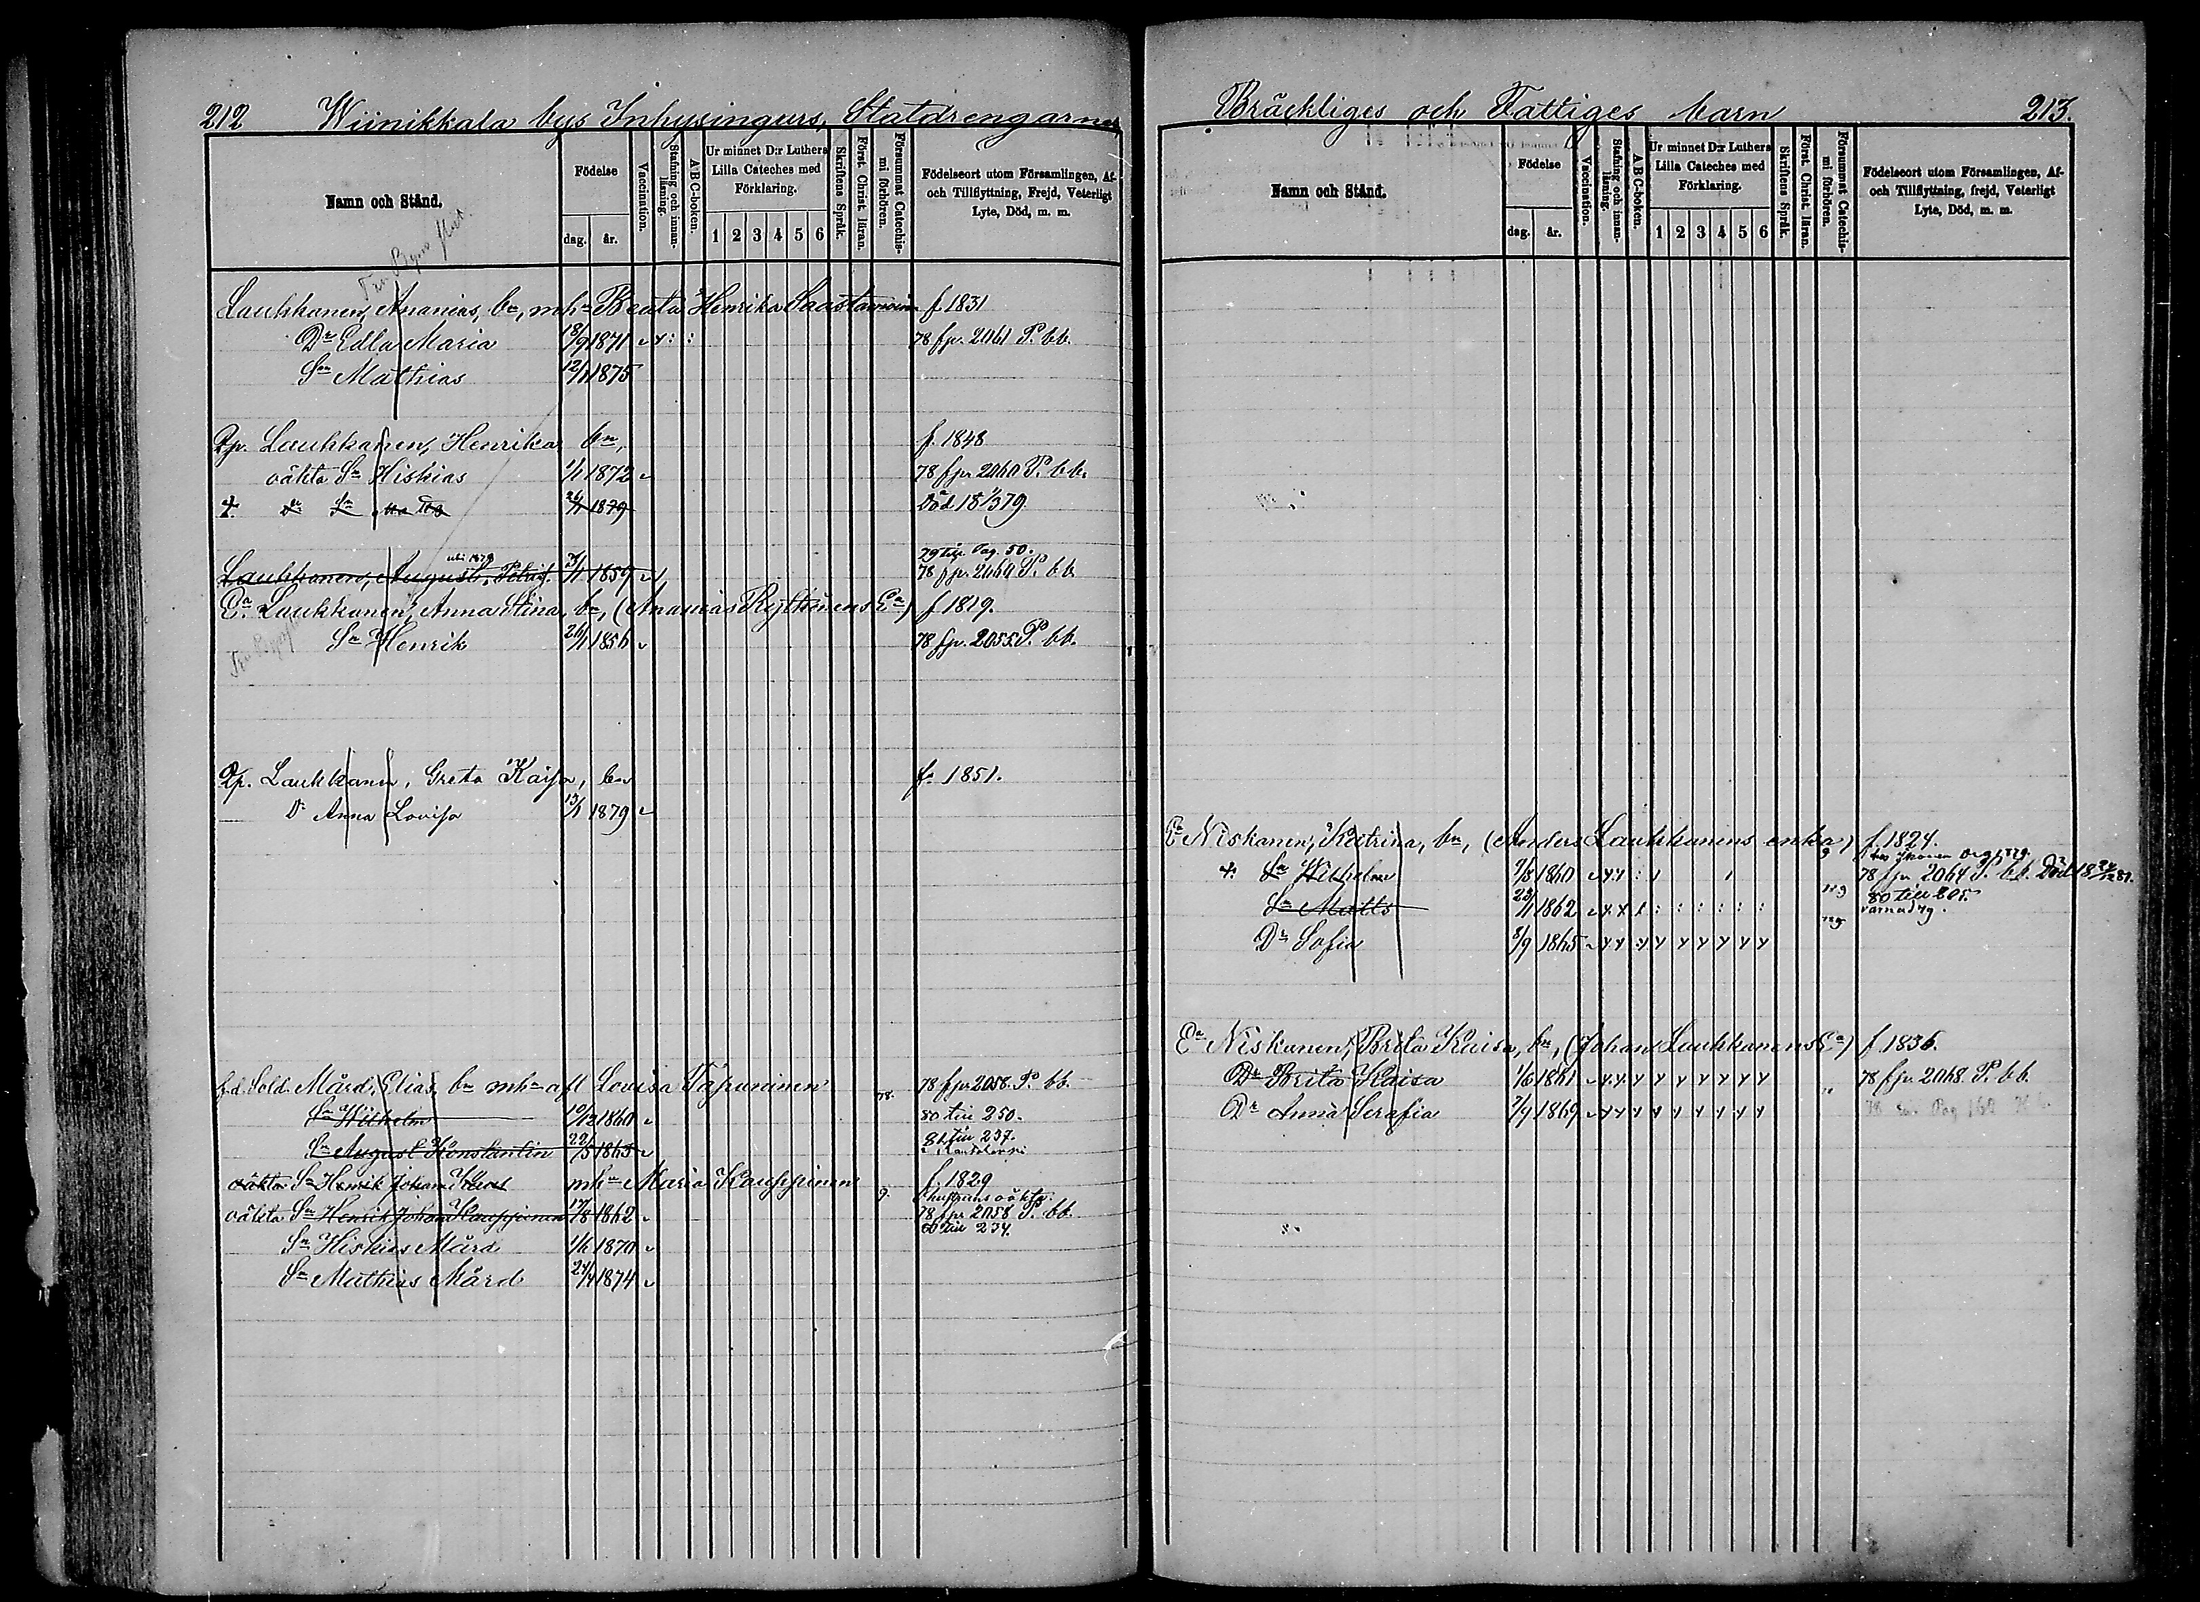 212 Wiinikkala bys Inhysingars, Statdrengarnes
Namn och Stånd.
Födelse
dag. år.
Vaccination.
Stafning och innanläsning.
ABC-boken.
Ur minnet D:r Luthers Lilla Cateches med Förklaring.
1 2 3 4 5 6
Skriftens Språk.
Först. Christ. läran.
Försummat Catechismi förhören.
Födelseort utom Församlingen, Af- och Tillflyttning, Frejd, Veterligt Lyte, Död, m. m.
Laukkanen, Ananias, bn, mhn Beata Henrika Saastamoinen f. 1831
Dr Edla Maria 18/9 1871 78 fpr. 2061 P. bb.
Sn Mathias 12/1 1875
Qp. Laukkanen, Henrika bn, f. 1848
oäkta Sn Hiskias 1/1 1872 78 fpr 2060 P. bb.
1879 Död 18 1/3 79
79 till Pag. 50.
Laukkanen, August, Petrisf. 1859 78 fpr. P. bb.
Ea Laukkanen, Anna Stina, bn, (Ananias Ea) f. 1819.
Sn Henrik 26/1 1856 78 fpr. 2055 P. bb.
Qp. Laukkanen, Greta Kaisa, bn f. 1851.
Dr Anna Lovisa 13/1 1879
f.d. Sold. Mård, Elias, bn mhn afl Lovisa 78. 78 fpr 2058 P. bb.
Sn Wilhelm 1860 80 till 250.
Sn August Konstantin 22/5 1865 81 till 237.
oäkta Sn Henrik Johan mhn Maria Kauppinen f. 1829
9. hustruns oäkta.
oäkta Sn Henrik Johan Kauppinen 17/8 1862 78 fpr 2058 P. bb.
80 till 234.
Sn Hiskias Mård 1/6 1870
Sn Mathias Mård 24/4 1874
Bräckliges och Fattiges barn 213.
Namn och Stånd.
Födelse
dag. år.
Vaccination.
Stafning och innanläsning.
ABC-boken.
Ur minnet D:r Luthers Lilla Cateches med Förklaring.
1 2 3 4 5 6
Skriftens Språk.
Först. Christ. läran.
Försummat Catechismi förhören.
Födelseort utom Församlingen, Af- och Tillflyttning, frejd, Veterligt Lyte, Död, m. m.
Ea Niskanen, Katrina, bn, (Anders Laukkanens enka) f. 1824.
Sn Wilhelm 7/8 1860 78 fpr 2064 P. bb. Död
Sn Matts 23/1 1862 80 till 205.
Dr Sofia 8/9 1865
Ea Niskanen, Brita Kaisa, bn, (Johan Laukkanens Ea) f. 1836.
Dr Brita Kaisa 1/6 1861 78 fpr. 2068. P. bb.
Dr Anna Serafia 7/9 1869